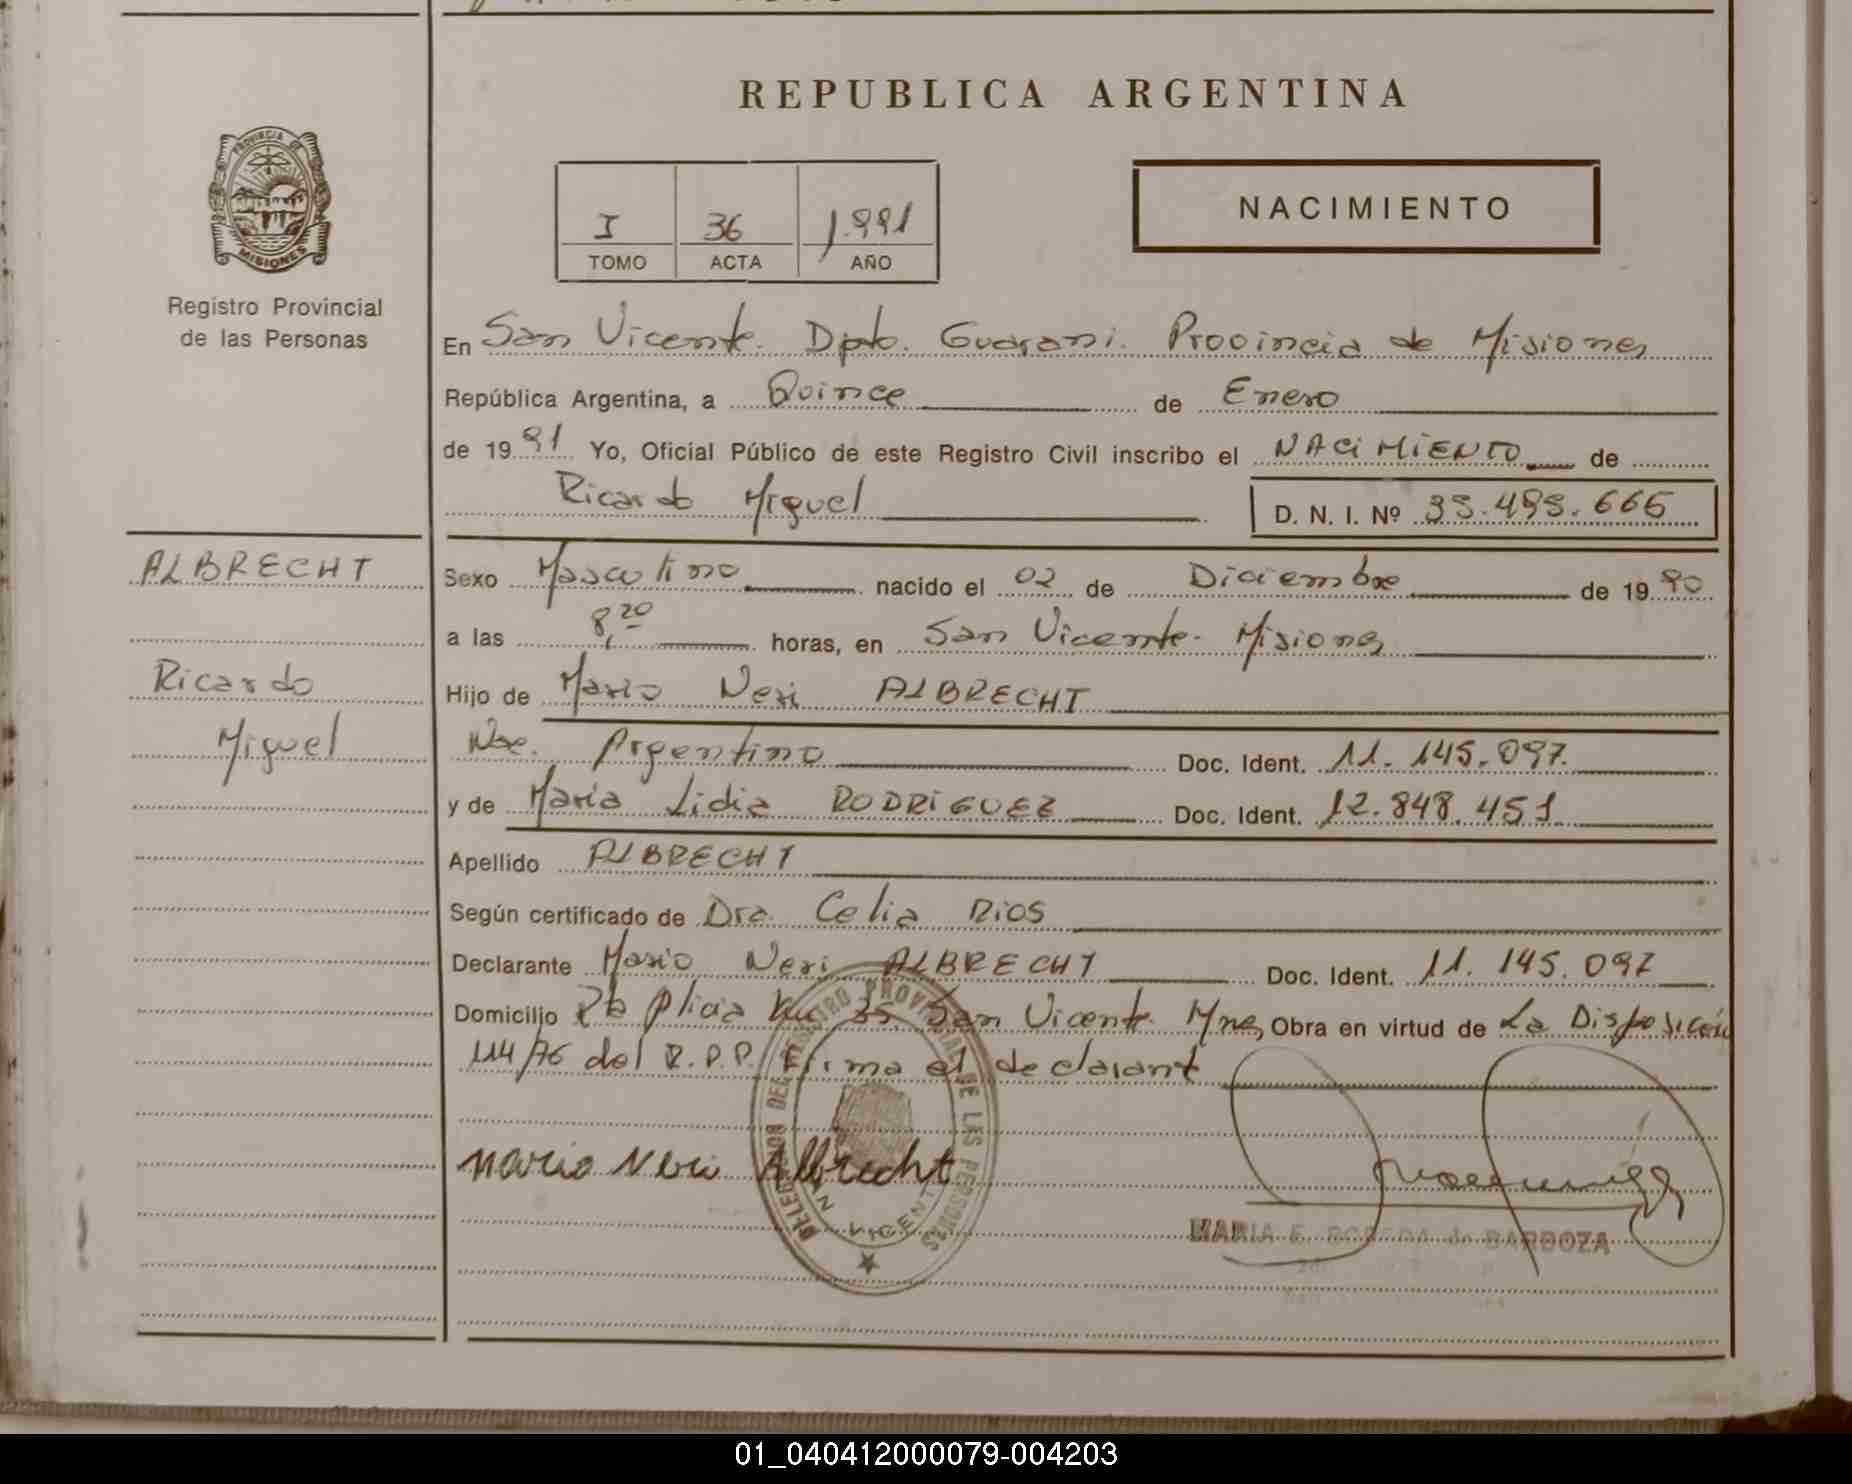 REPUBLICA ARGENTINA
PROVINCIA DE
MISIONES
Registro Provincial
de las Personas
I 36 1.991
TOMO ACTA AÑO
NACIMIENTO
En San Vicente. Dpto. Guarani. Provincia de Misiones
República Argentina, a Quince de Enero
de 1991 Yo, Oficial Público de este Registro Civil inscribo el NACIMIENTO de
Ricardo Miguel D. N. I. Nº
ALBRECHT
Ricardo
Miguel
Sexo Masculino nacido el 02 de Diciembre de 1990
a las 8,20 horas, en San Vicente. Misiones
Hijo de Mario Neri ALBRECHT
Nac. Argentino Doc. Ident. 11.145.097.
y de Maria Lidia RODRIGUEZ Doc. Ident. 12.848.451
Apellido ALBRECHT
Según certificado de Dra. Celia Rios
Declarante Mario Neri ALBRECHT Doc. Ident. 11.145.097
Domicilio Pto Plicia Km 35 San Vicente Mnes Obra en virtud de La Disposición
114/76 del R.P.P. Firma el declarant
Mario Neri Albrecht
DEL REGISTRO PROVINCIAL DE LES PERSONAS
VICENT
MARIA E. de BARBOZA
01_040412000079-004203